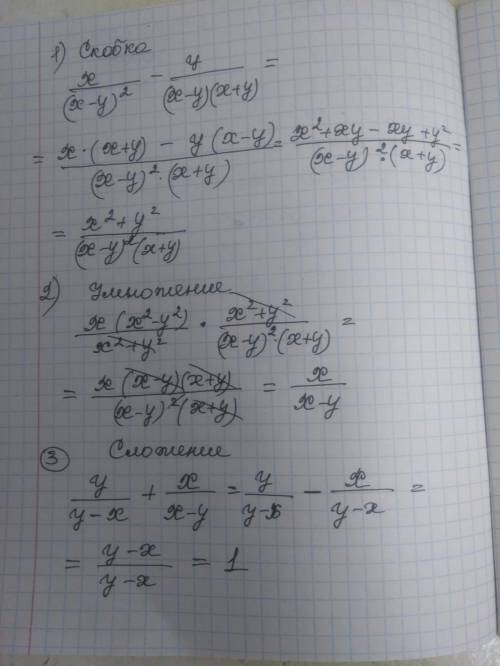 1) Скобка
x/(x-y)² - y/(x-y)(x+y) =
= x·(x+y) - y(x-y)/(x-y)²·(x+y) = x²+xy-xy+y²/(x-y)²·(x+y) =
= x²+y²/(x-y)²(x+y)
2) Умножение
x(x²-y²)/x²+y² · x²+y²/(x-y)²·(x+y) =
= x(x-y)(x+y)/(x-y)²(x+y) = x/x-y
3 Сложение
y/y-x + x/x-y = y/y-x - x/y-x =
= y-x/y-x = 1